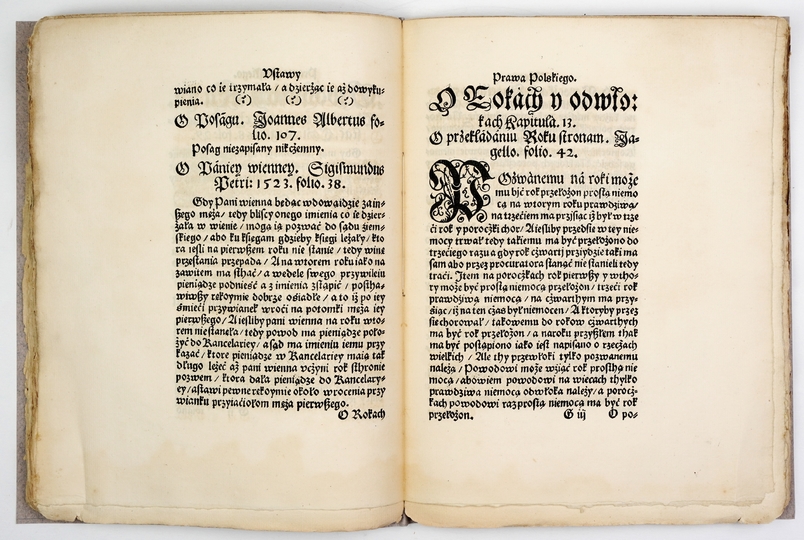 Vstawy
wiano co ie trzymała / a dzierżąc ie aż do wyku-
pienia.
O Poságu. Joannes Albertus fo-
lio. 107.
Posag niezapisany nikczemny.
O Pániey wienney. Sigismundus
Petri: 1523. folio. 38.
Gdy Pani wienna będąc wdową idzie za in-
szego męża / tedy bliscy onego imienia co ie dzier-
żała w wienie / mogą ią pozwać do sądu ziem-
skiego / abo ku księgam gdzieby księgi leżały / kto
ra iesli na pierwszem roku nie stanie / tedy winę
przestania przepada / A na wtorem roku iako na
zawitem ma stać / a wedele swego przywileiu
pieniądze podnieść a z imienia zstąpić / postha-
wiwszy rękoymie dobrze osiadłe / a to iż po iey
śmierci przywianek wroci na potomki męża iey
pierwszego / A iesliby pani wienna na roku wto-
rem nie stanęła / tedy powod ma pieniądze poło-
żyć do Kancelariey / a sąd ma imieniu iemu przy
kazać / ktore pieniądze w Kancelariey maią tak
długo leżeć aż pani wienna vczyni rok sthronie
pozwem / ktora dała pieniądze do Kancelary-
ey / a stawi pewne rękoymie około wrocenia przy
wianku przyiaciołom męża pierwszego.
O Rokach
Prawa Polskiego.
O Rokách y odwło:
kach Kapitula. 13.
O przekładániu Roku stronam. Ja-
gello. folio. 42.
POzwánemu ná roki może
mu być rok przełożon prostą niemo
cą na wtorym roku prawdziwą /
na trzeciem ma przysiąc iż był w trze
ći rok y poroczki chor / A iesliby przedsie w tey nie-
mocy trwał tedy takiemu ma być przełożono do
trzeciego razu a gdy rok czwarty przyidzie taki ma
sam abo przez procuratora stanąć nie stanieli tedy
traći. Item na poroczkach rok pierwszy y wtho-
ry może być prostą niemocą przełożon / trzeći rok
prawdziwą niemocą / na czwarthym ma przy-
siąc / iż na ten czas był niemocen / A ktoryby przez
sie chorował / takowemu do rokow czwarthych
ma być rok przełożon / a naroku przyszłem thak
ma być postąpiono iako iest napisano o rzeczach
wielkich / Ale thy przewłoki tylko pozwanemu
należą / Powodowi może wziąć rok prosthą nie
mocą / abowiem powodowi na wiecach thylko
prawdziwa niemocą odwłoka należy / a porocz-
kach powodowi raz prostą niemocą ma być rok
przełożon.
G iij O po-